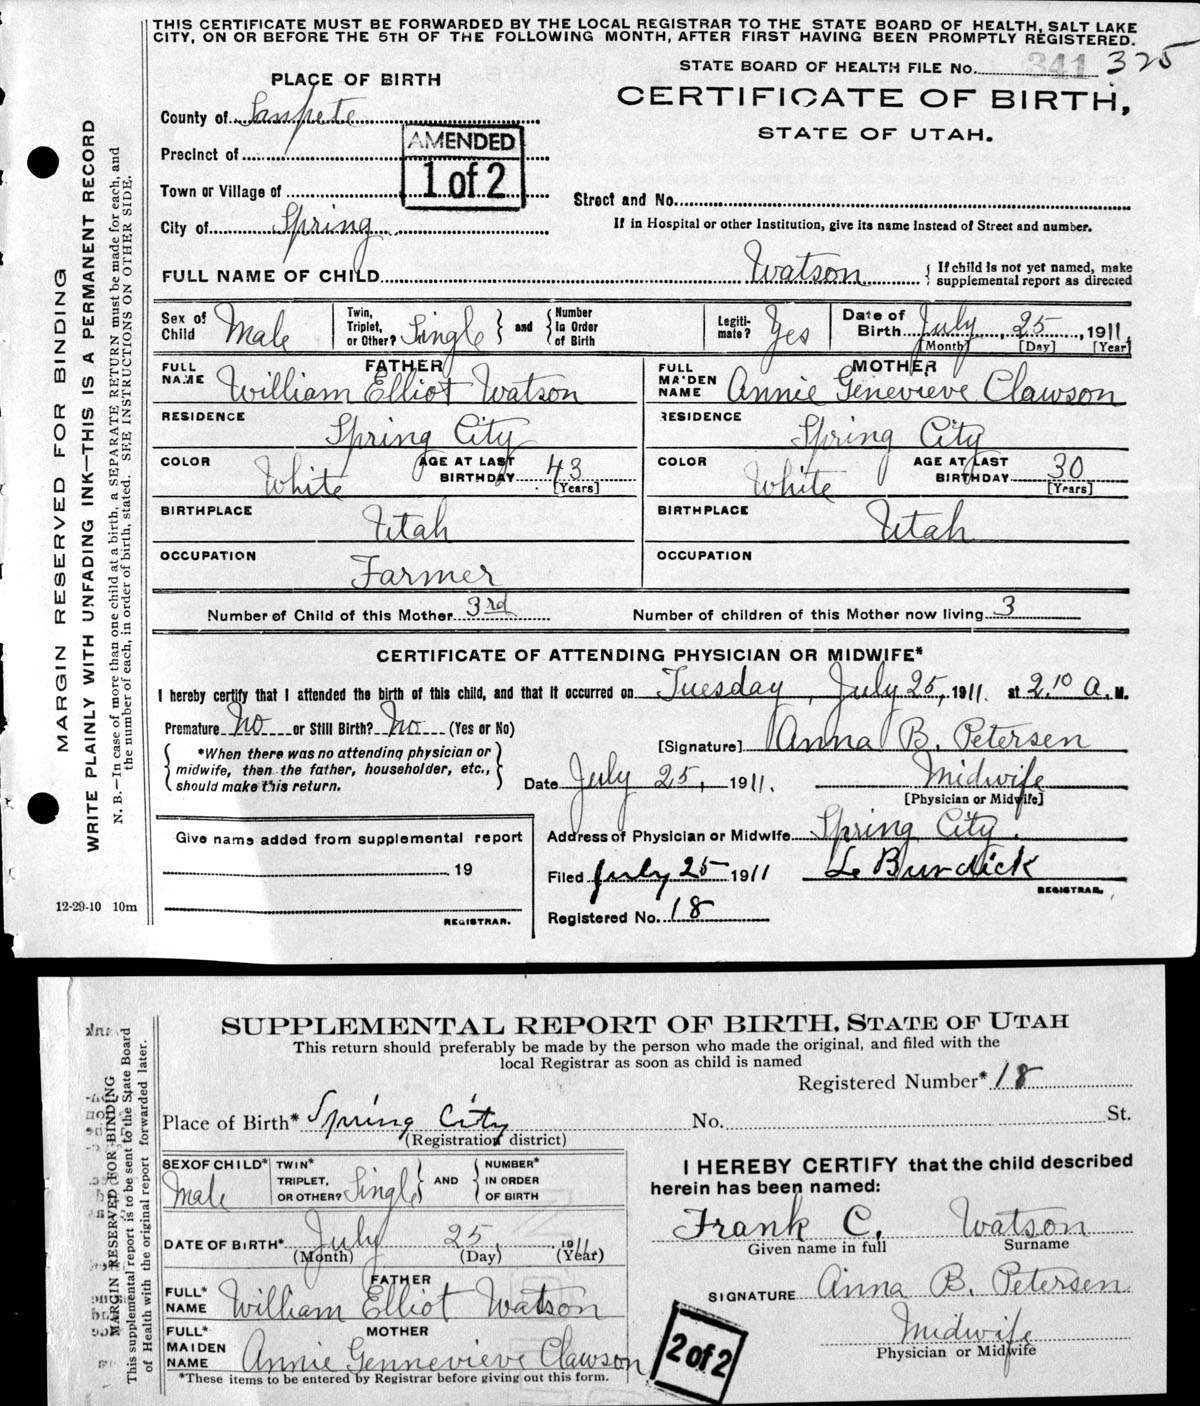 THIS CERTIFICATE MUST BE FORWARDED BY THE LOCAL REGISTRAR TO THE STATE BOARD OF HEALTH, SALT LAKE
CITY, ON OR BEFORE THE 5TH OF THE FOLLOWING MONTH, AFTER FIRST HAVING BEEN PROMPTLY REGISTERED.
STATE BOARD OF HEALTH FILE No. 341 325
PLACE OF BIRTH
CERTIFICATE OF BIRTH,
STATE OF UTAH.
County of Sanpete
AMENDED
1 of 2
Precinct of
Town or Village of
Street and No.
City of Spring
If in Hospital or other Institution, give its name Instead of Street and number.
FULL NAME OF CHILD Watson { If child is not yet named, make
supplemental report as directed
Sex of Child Male
Twin, Triplet, or Other? Single } and { Number In Order of Birth
Legiti-mate? Yes
Date of Birth July, 25, 1911
[Month] [Day] [Year]
FATHER
FULL NAME William Elliot Watson
RESIDENCE Spring City
COLOR White AGE AT LAST BIRTHDAY 43 [Years]
BIRTHPLACE Utah
OCCUPATION Farmer
MOTHER
FULL MAIDEN NAME Annie Genevieve Clawson
RESIDENCE Spring City
COLOR White AGE AT LAST BIRTHDAY 30 [Years]
BIRTHPLACE Utah
OCCUPATION
Number of Child of this Mother 3rd Number of children of this Mother now living 3
CERTIFICATE OF ATTENDING PHYSICIAN OR MIDWIFE*
I hereby certify that I attended the birth of this child, and that it occurred on Tuesday, July 25, 1911. at 2.10 A. M.
Premature No or Still Birth? No (Yes or No)
[Signature] Anna B. Petersen
{ *When there was no attending physician or
midwife, then the father, householder, etc.,
should make this return. }
Date July 25, 1911. Midwife
[Physician or Midwife]
Give name added from supplemental report
19
REGISTRAR.
Address of Physician or Midwife Spring City.
Filed July 25 1911 L Burdick
REGISTRAR.
Registered No. 18
12-29-10 10m
MARGIN RESERVED FOR BINDING
WRITE PLAINLY WITH UNFADING INK—THIS IS A PERMANENT RECORD
N. B.—In case of more than one child at a birth, a SEPARATE RETURN must be made for each, and
the number of each, in order of birth, stated. SEE INSTRUCTIONS ON OTHER SIDE.
SUPPLEMENTAL REPORT OF BIRTH, STATE OF UTAH
This return should preferably be made by the person who made the original, and filed with the
local Registrar as soon as child is named
Registered Number* 18
Place of Birth* Spring City No. St.
(Registration district)
SEX OF CHILD* Male
TWIN* TRIPLET, OR OTHER? Single } AND { NUMBER* IN ORDER OF BIRTH
DATE OF BIRTH* July 25, 1911
(Month) (Day) (Year)
FATHER
FULL* NAME William Elliot Watson
MOTHER
FULL* MAIDEN NAME Annie Gennevieve Clawson
*These items to be entered by Registrar before giving out this form.
I HEREBY CERTIFY that the child described
herein has been named:
Frank C. Watson
Given name in full Surname
SIGNATURE Anna B. Petersen
Midwife
Physician or Midwife
2 of 2
MARGIN RESERVED FOR BINDING
This supplemental report is to be sent to the State Board
of Health with the original report forwarded later.